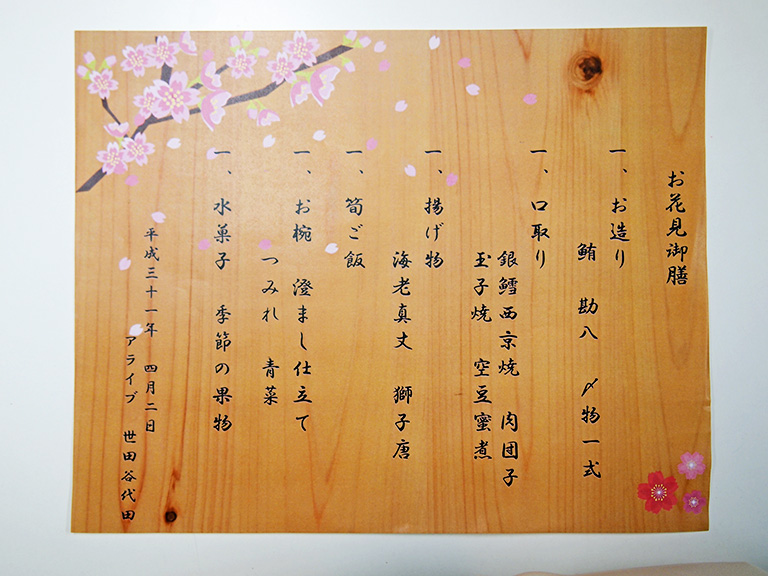 お花見御膳
一、お造り
鮪 勘八 〆物一式
一、口取り
銀鱈西京焼 肉団子
玉子焼 空豆蜜煮
一、揚げ物
海老真丈 獅子唐
一、筍ご飯
一、お椀 澄まし仕立て
つみれ 青菜
一、水菓子 季節の果物
平成三十一年 四月二日
アライブ 世田谷代田